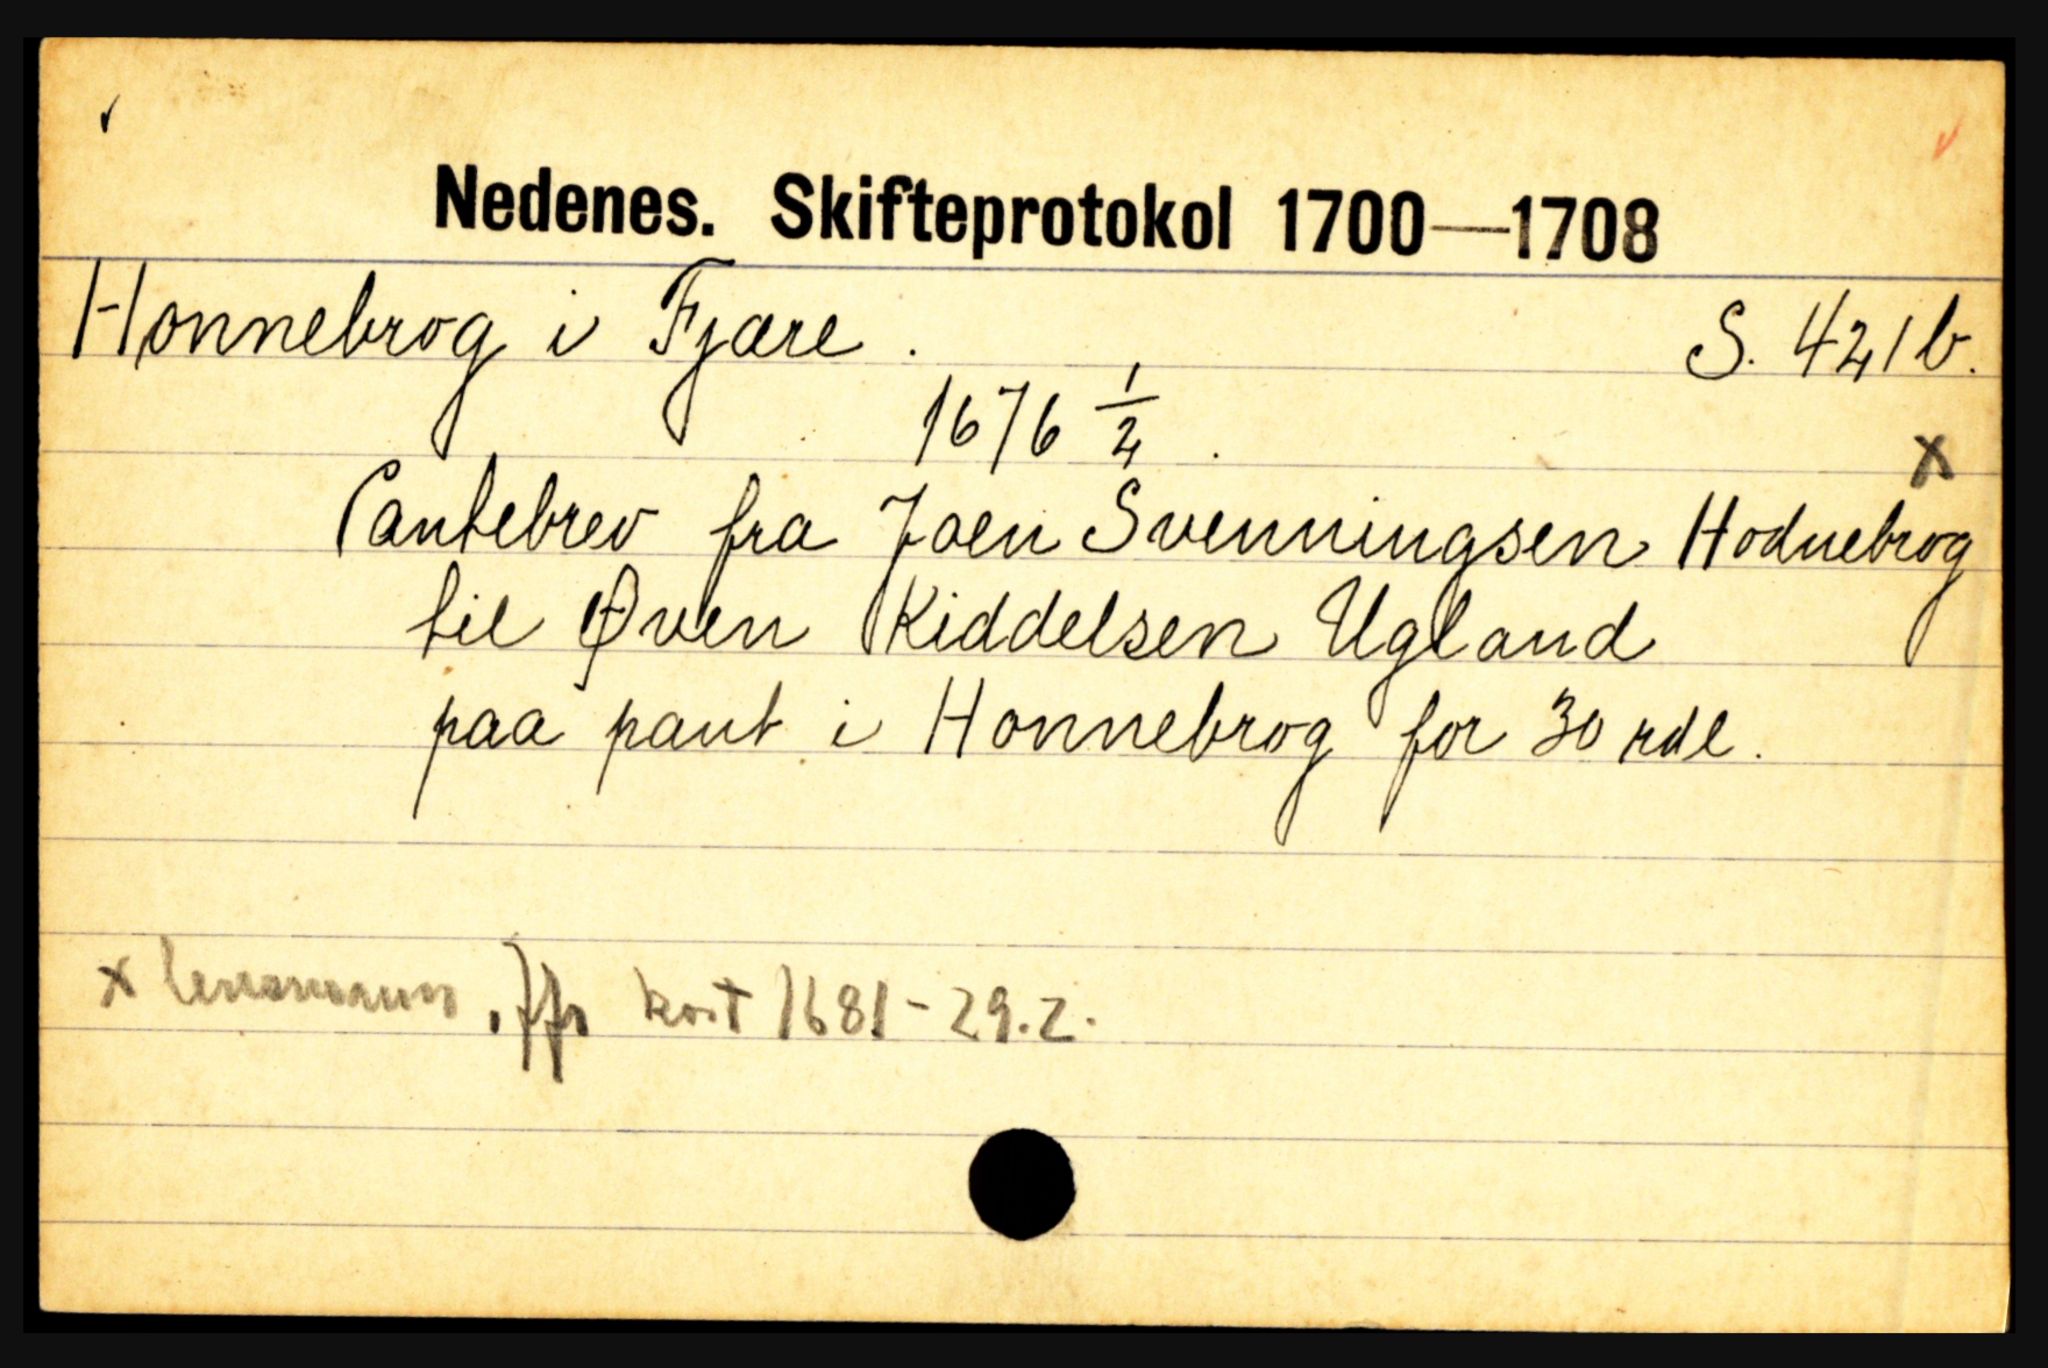 Nedenes. Skifteprotokol 1700—1708
Honnebrog i Fjære . S. 421b.
1676 1/2 .
x
Pantebrev fra Joen Svenningsen Hodnebrog
til Øven Kiddelsen Ugland
paa pant i Honnebrog for 30 rdl.
x lensmann, jfr kort 1681-29.2.